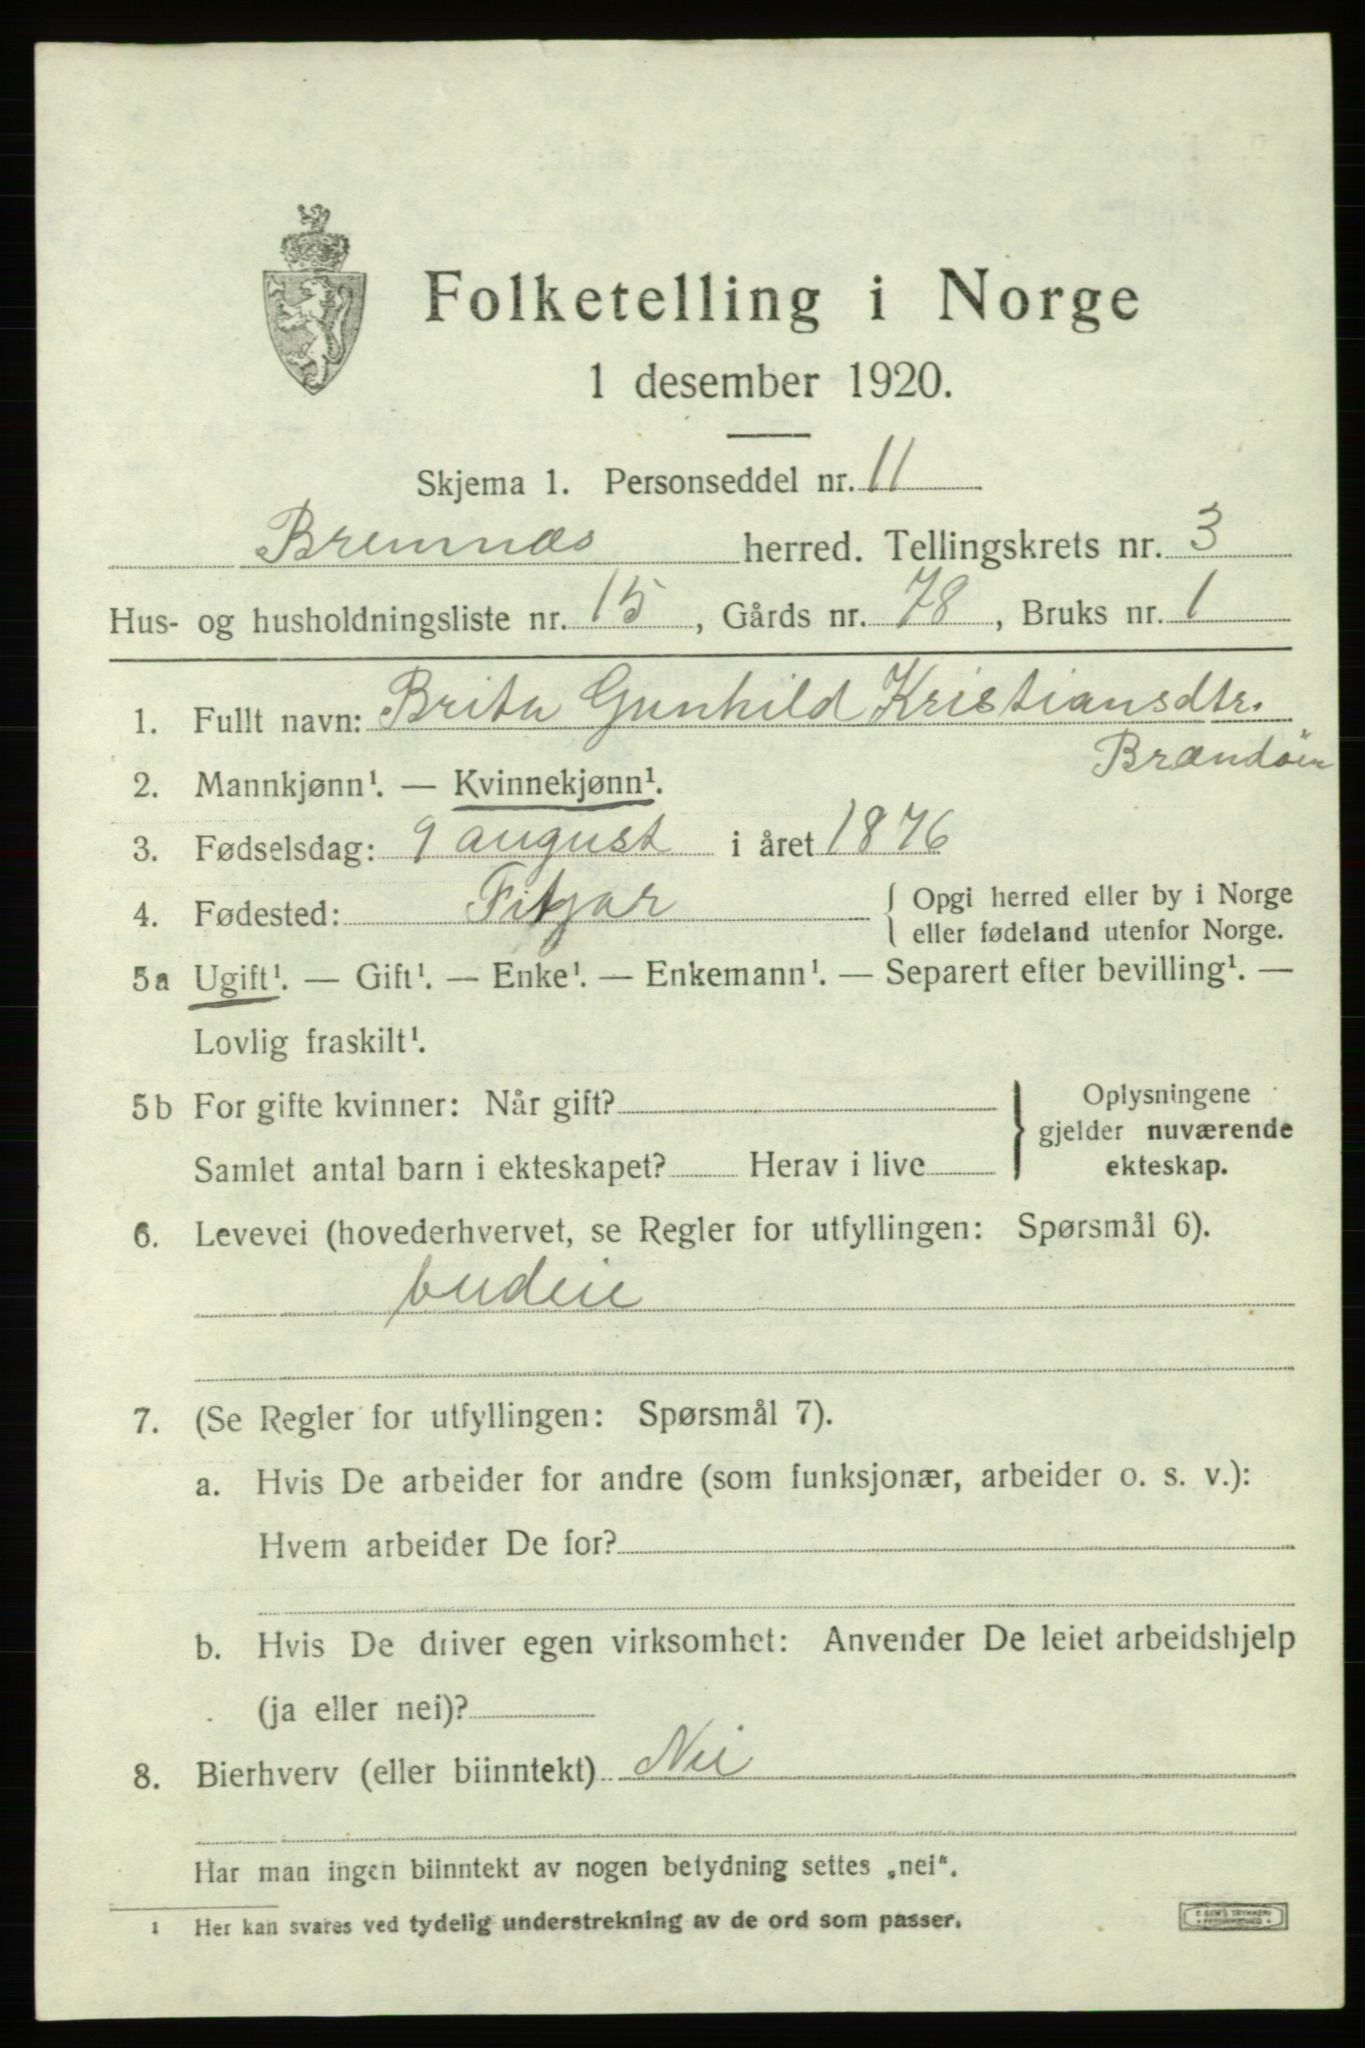 Folketelling i Norge
1 desember 1920.
Skjema 1. Personseddel nr. 11
Bremnæs herred. Tellingskrets nr. 3
Hus- og husholdningsliste nr. 15, Gårds nr. 78, Bruks nr. 1
1. Fullt navn: Brita Gunhild Kristiansdtr.
Brandöen
2. Mannkjønn¹. — Kvinnekjønn¹.
3. Fødselsdag: 9 august i året 1876
4. Fødested: Fitjar { Opgi herred eller by i Norge
eller fødeland utenfor Norge.
5a Ugift¹. — Gift¹. — Enke¹. — Enkemann¹. — Separert efter bevilling¹. —
Lovlig fraskilt¹.
5b For gifte kvinner: Når gift? } Oplysningene
gjelder nuværende
Samlet antal barn i ekteskapet? Herav i live ekteskap.
6. Levevei (hovederhvervet, se Regler for utfyllingen: Spørsmål 6).
budeie
7. (Se Regler for utfyllingen: Spørsmål 7).
a. Hvis De arbeider for andre (som funksjonær, arbeider o. s. v.):
Hvem arbeider De for?
b. Hvis De driver egen virksomhet: Anvender De leiet arbeidshjelp
(ja eller nei)?
8. Bierhverv (eller biinntekt) Nei
Har man ingen biinntekt av nogen betydning settes „nei“.
¹ Her kan svares ved tydelig understrekning av de ord som passer.